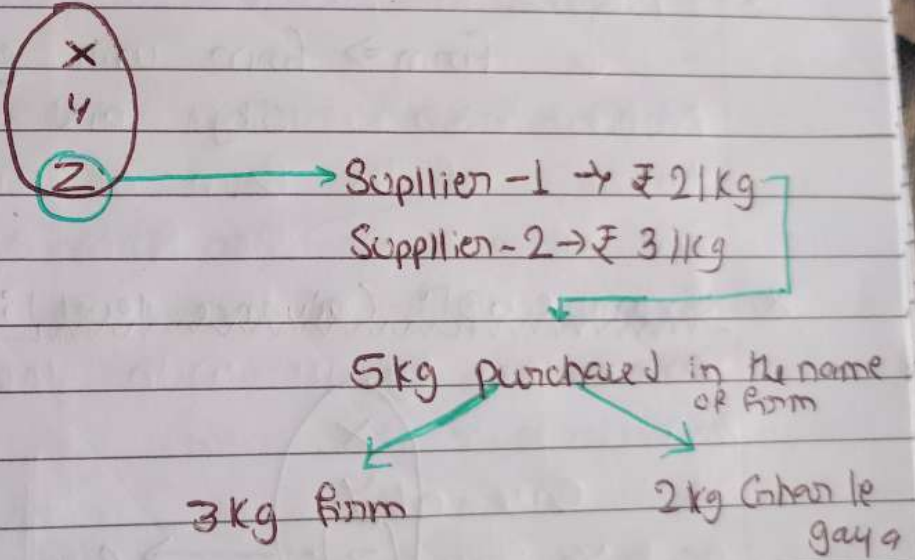 X
Y
Z
Supllier - 1 → ₹ 2/kg
Suppllier - 2 → ₹ 3/kg
5kg purchased in the name
of firm
3kg firm
2kg Ghar le
gaya